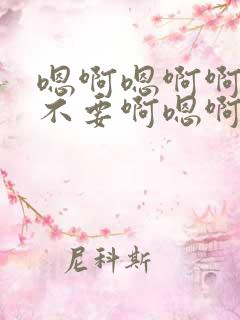 嗯啊嗯啊啊
不要啊嗯啊
尼科斯